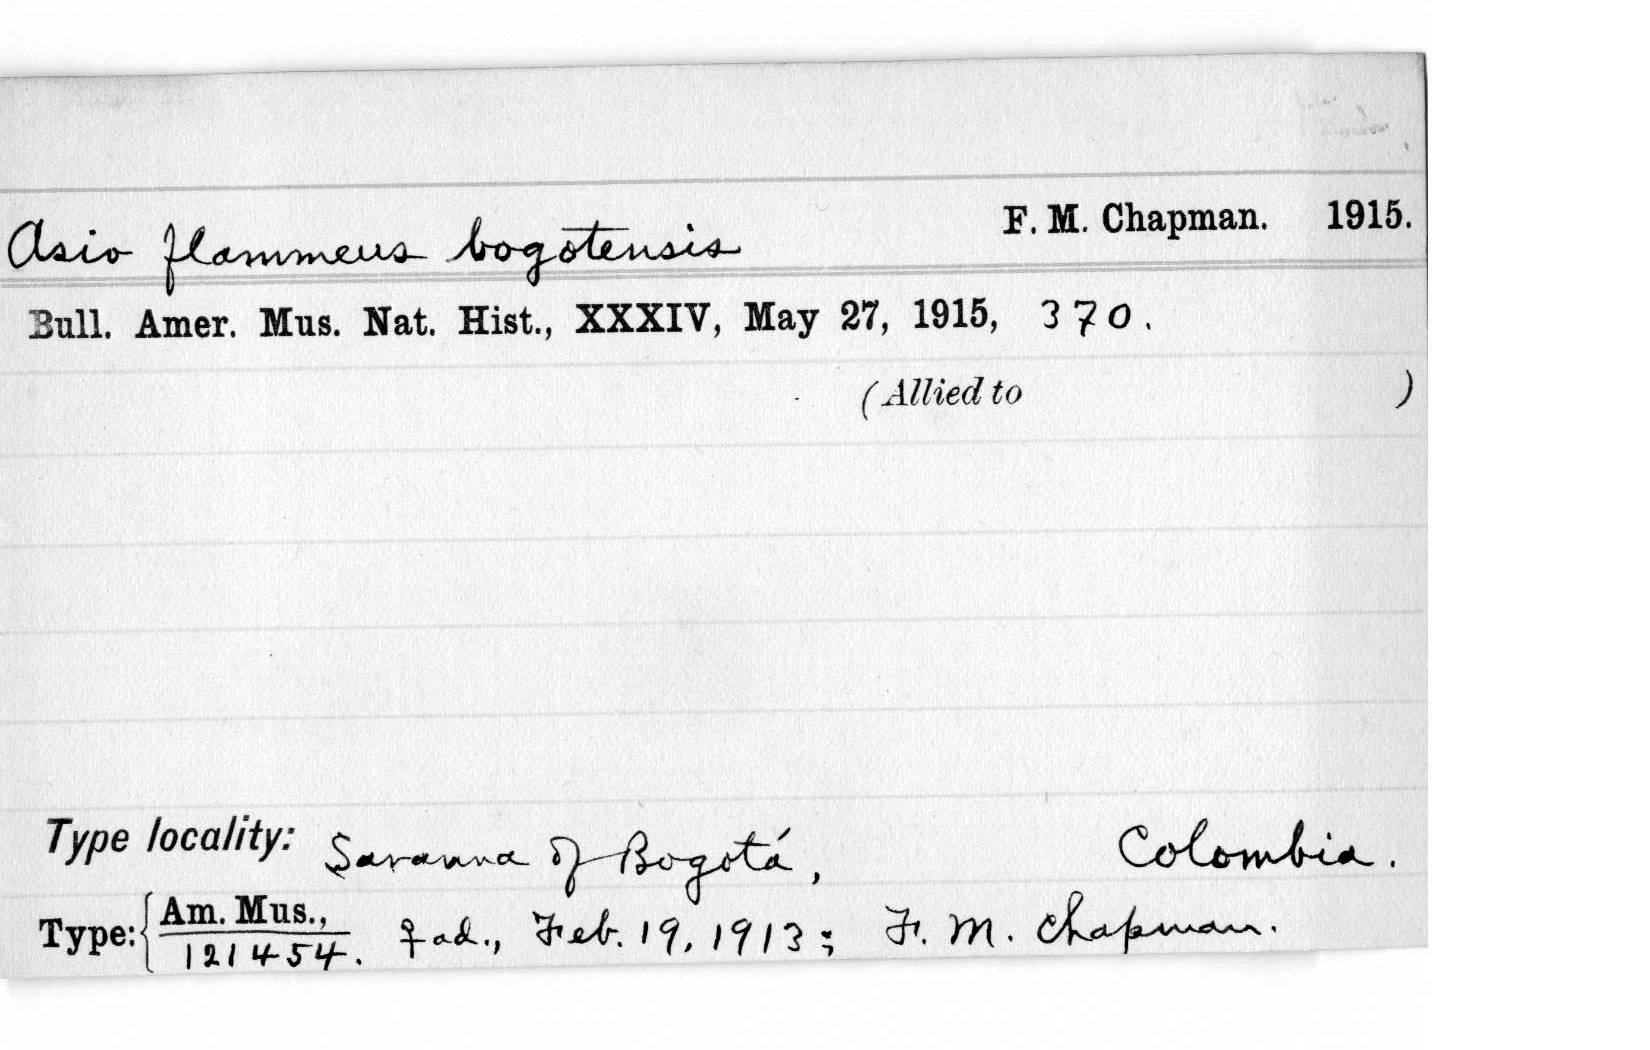 Asio flammeus bogotensis F. M. Chapman. 1915.
Bull. Amer. Mus. Nat. Hist., XXXIV, May 27, 1915, 370.
(Allied to )
Type locality: Savanna of Bogotá, Colombia.
Type: { Am. Mus., 121454. ♀ ad., Feb. 19, 1913; F. M. Chapman.